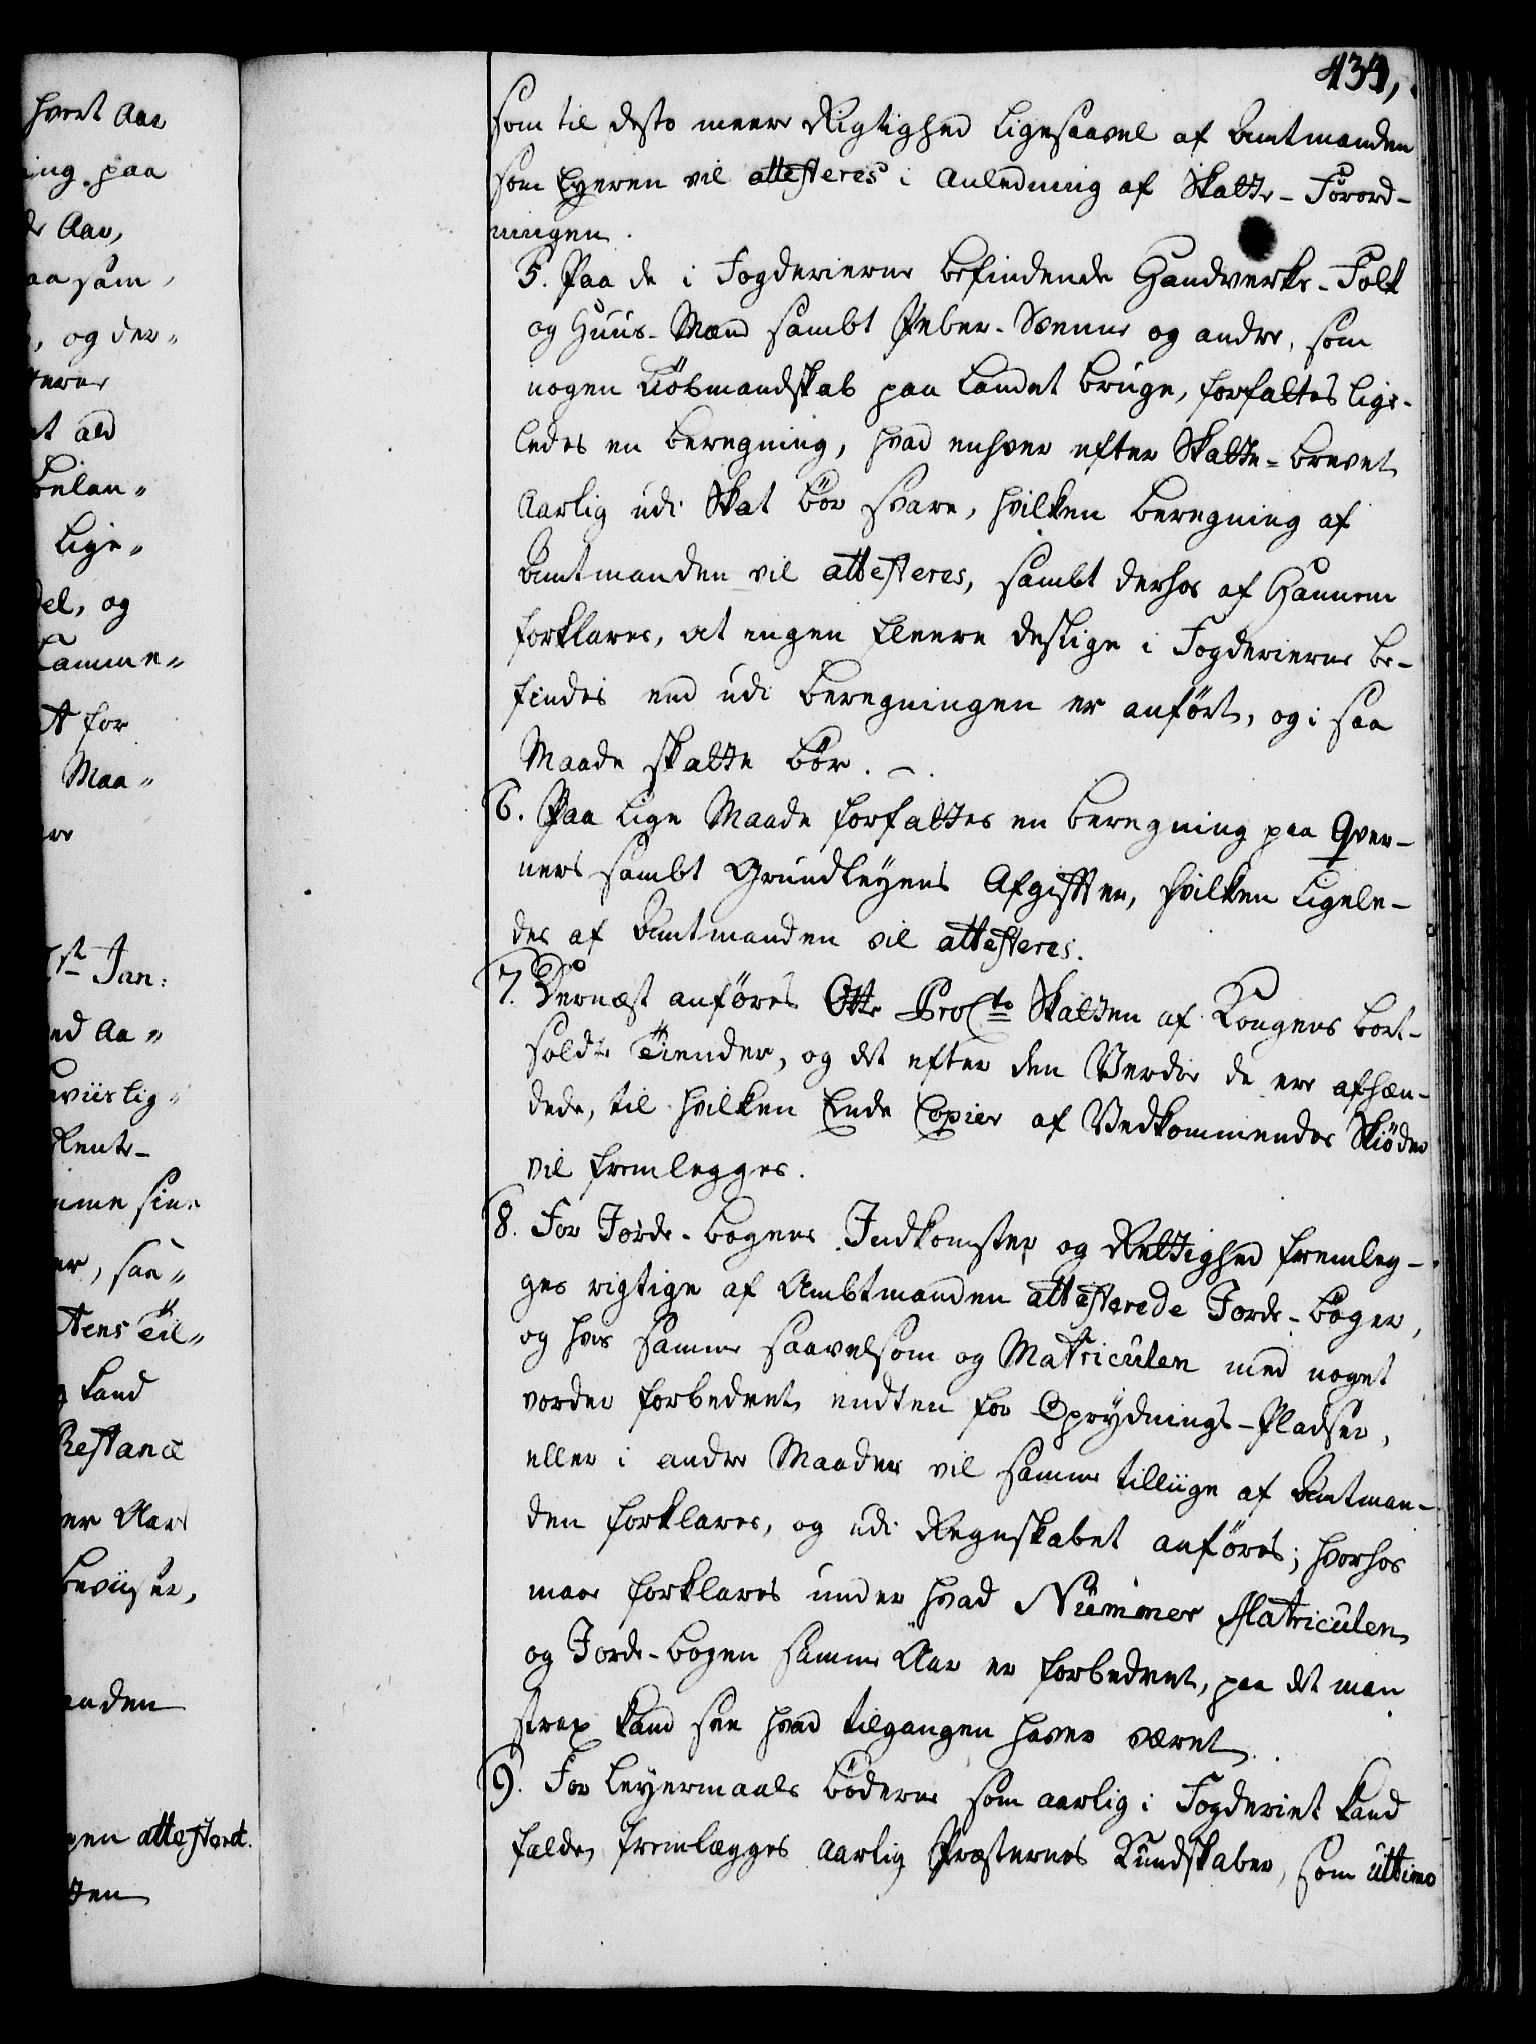 hvert Aar
ing paa
Aar,
aa som
, og der„
terer
t ald
belan„
Lige„
del, og
Samme„
t for
Maa„
re
1st Jan:
ed Aa„
eviislig„
Rente-
mme sine
er, saa„
tens Til„
Land
Restance
er Aars
beviiser,
anden
gen attesteret.
ten
som til desto meere Rigtighed ligesaavel af Amtmanden
som Eyeren vil attesteres i Anledning af Skatte-Forord-
ningen.
5. Paa de i Fogderierne befindende Handverks-Folk
og Huus-Mænd sambt Peber-Svenne og andre, som
nogen Kiöbmandskab paa Landet bruge, forfattes lige-
ledes en beregning, hvad enhver efter Skatte-brevet
Aarlig udi Skat bör svare, hvilken beregning af
Amtmanden vil attesteres, sambt derhos af Hannem
forklares, at ingen fleere deslige i Fogderierne be-
findes end udi beregningen er anfört, og i saa
Maade skatte bör.
6. Paa lige Maade forfattes en beregning paa Qver-
ners sambt Grundleyens Afgiffter, hvilken ligele-
des af Amtmanden vil attesteres.
7. Dernæst anföres Otte ProCto Skatten af Kongens bort-
soldte Tiender, og det efter den Verdie de ere afhæn-
dede, til hvilken Ende Copier af Vedkommendes Skiöder
vil fremlegges.
8. For Jorde-bogens Indkomster og Rettighed fremleg-
ges rigtige af Ambtmanden attesterede Jorde-böger,
og hvis samme saavelsom og Matriculen med noget
vorder forbedret, endten for Oprydnings-Pladser,
eller i andre Maader vil samme tilliige af Amtman-
den forklares, og udi Regnskabet anföres; hvorhos
maae forklares under hvad Nummer Matriculen
og Jorde-bogen samme Aar er forbedret, paa det man
strax kand see hvad tilgangen haver været.
9. For Leyermaals böderne som aarlig i Fogderiet kand
falde, fremlægges aarlig Præsternes Kundskaber, som ultimo